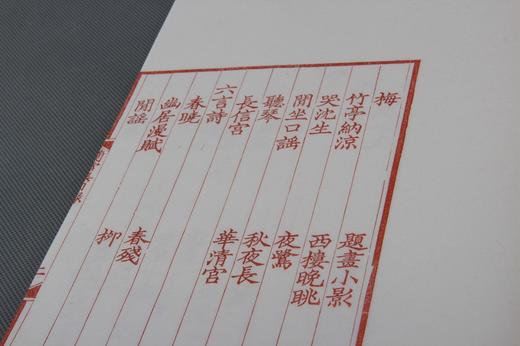 梅 題畫小影
竹亭納涼 西樓晚眺
哭沈生 夜
閒坐口謡 秋夜長
聽琴 華清宮
長信宮
六言詩
春曉 春殘
幽居漫賦 柳
閒謡